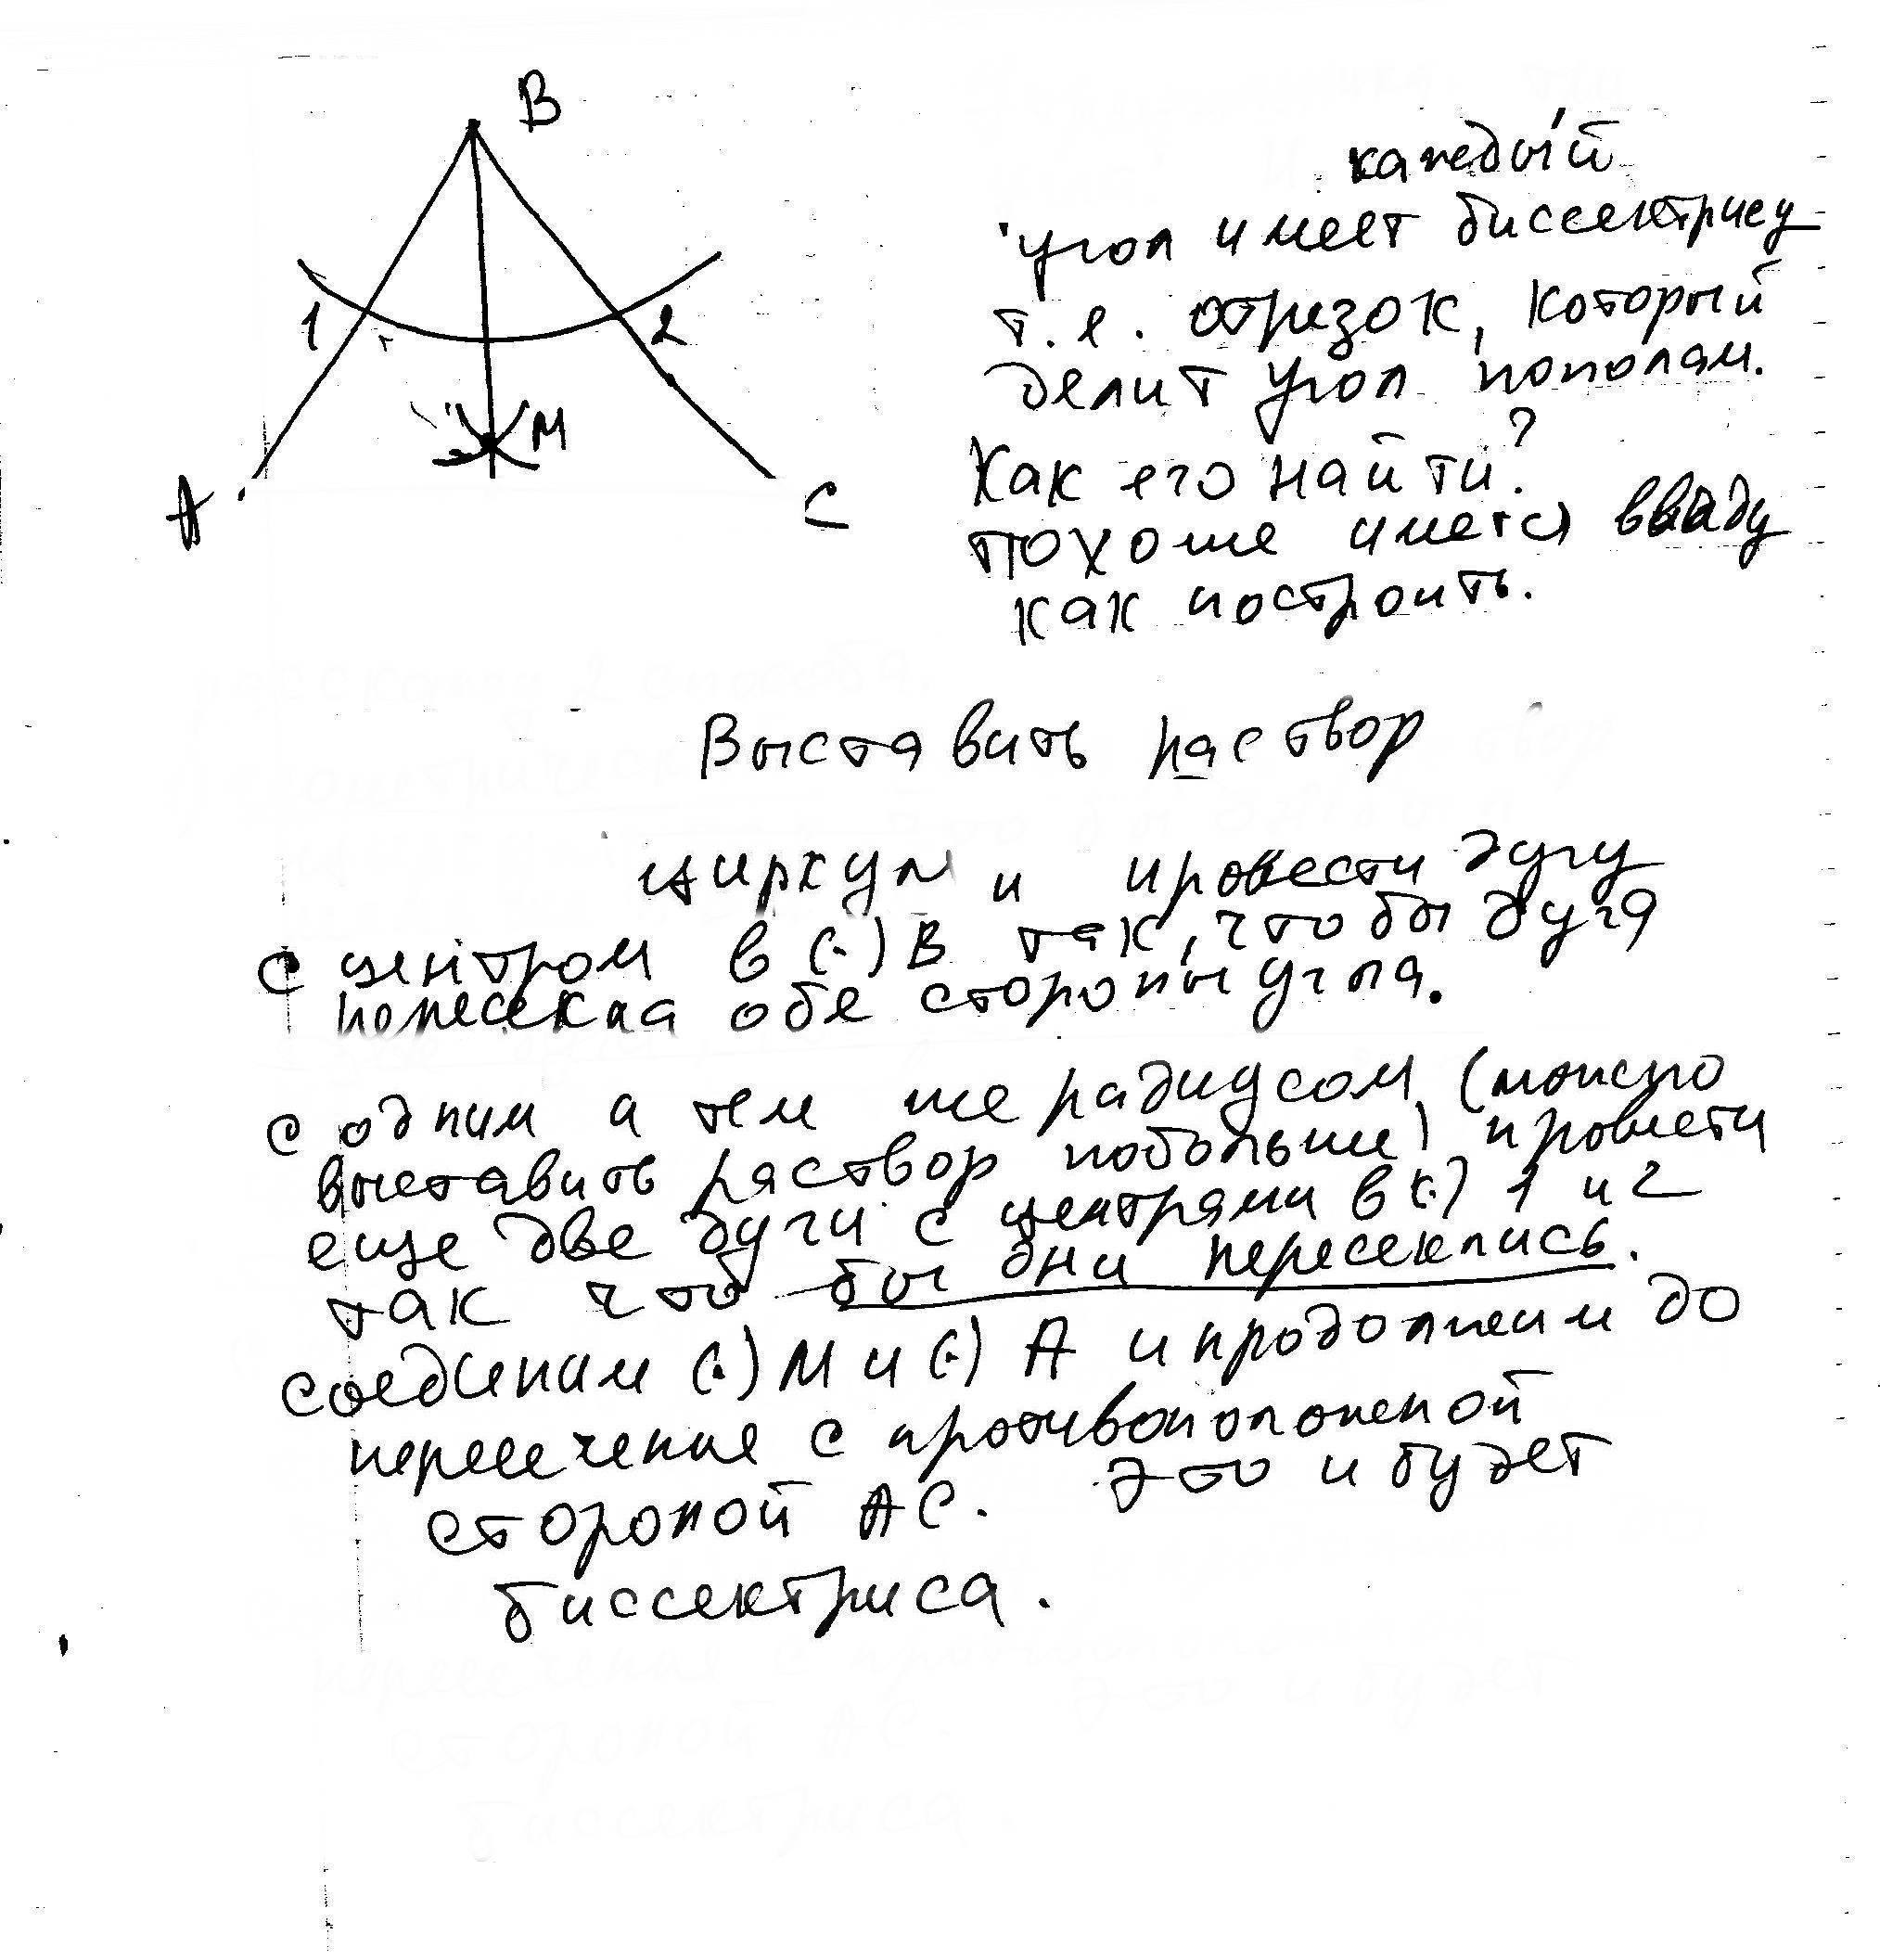 B
1
2
M
A
C
каждый
угол имеет биссектрису
т.е. отрезок, который
делит угол пополам.
Как его найти?
похоже имется ввиду
как построить.
Выставить раствор
циркулм и провести дугу
с центром в (.) B так, что бы дуга
пересекла обе стороны угла.
с одним а тем же радиусом (можно
выставить раствор побольше) провести
еще две дуги с центрами в (.) 1 и 2
так что бы они пересеклись.
соединим (.) M и (.) A и продолжим до
пересечения с противоположеной
стороной AC. Это и будет
биссектриса.